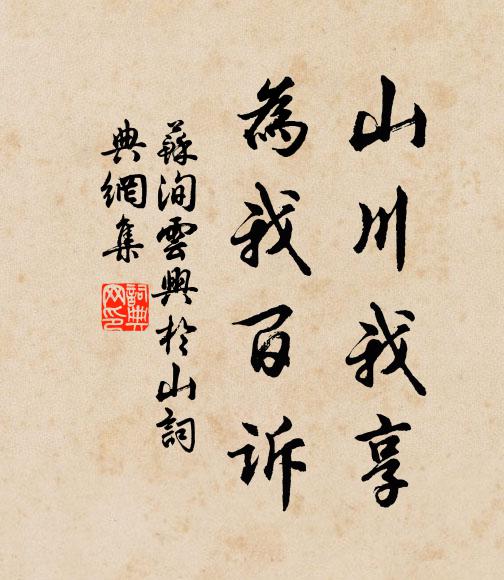 山川我享
為我百訴
蘇洵雲興於山詞
典網集
詞典網印